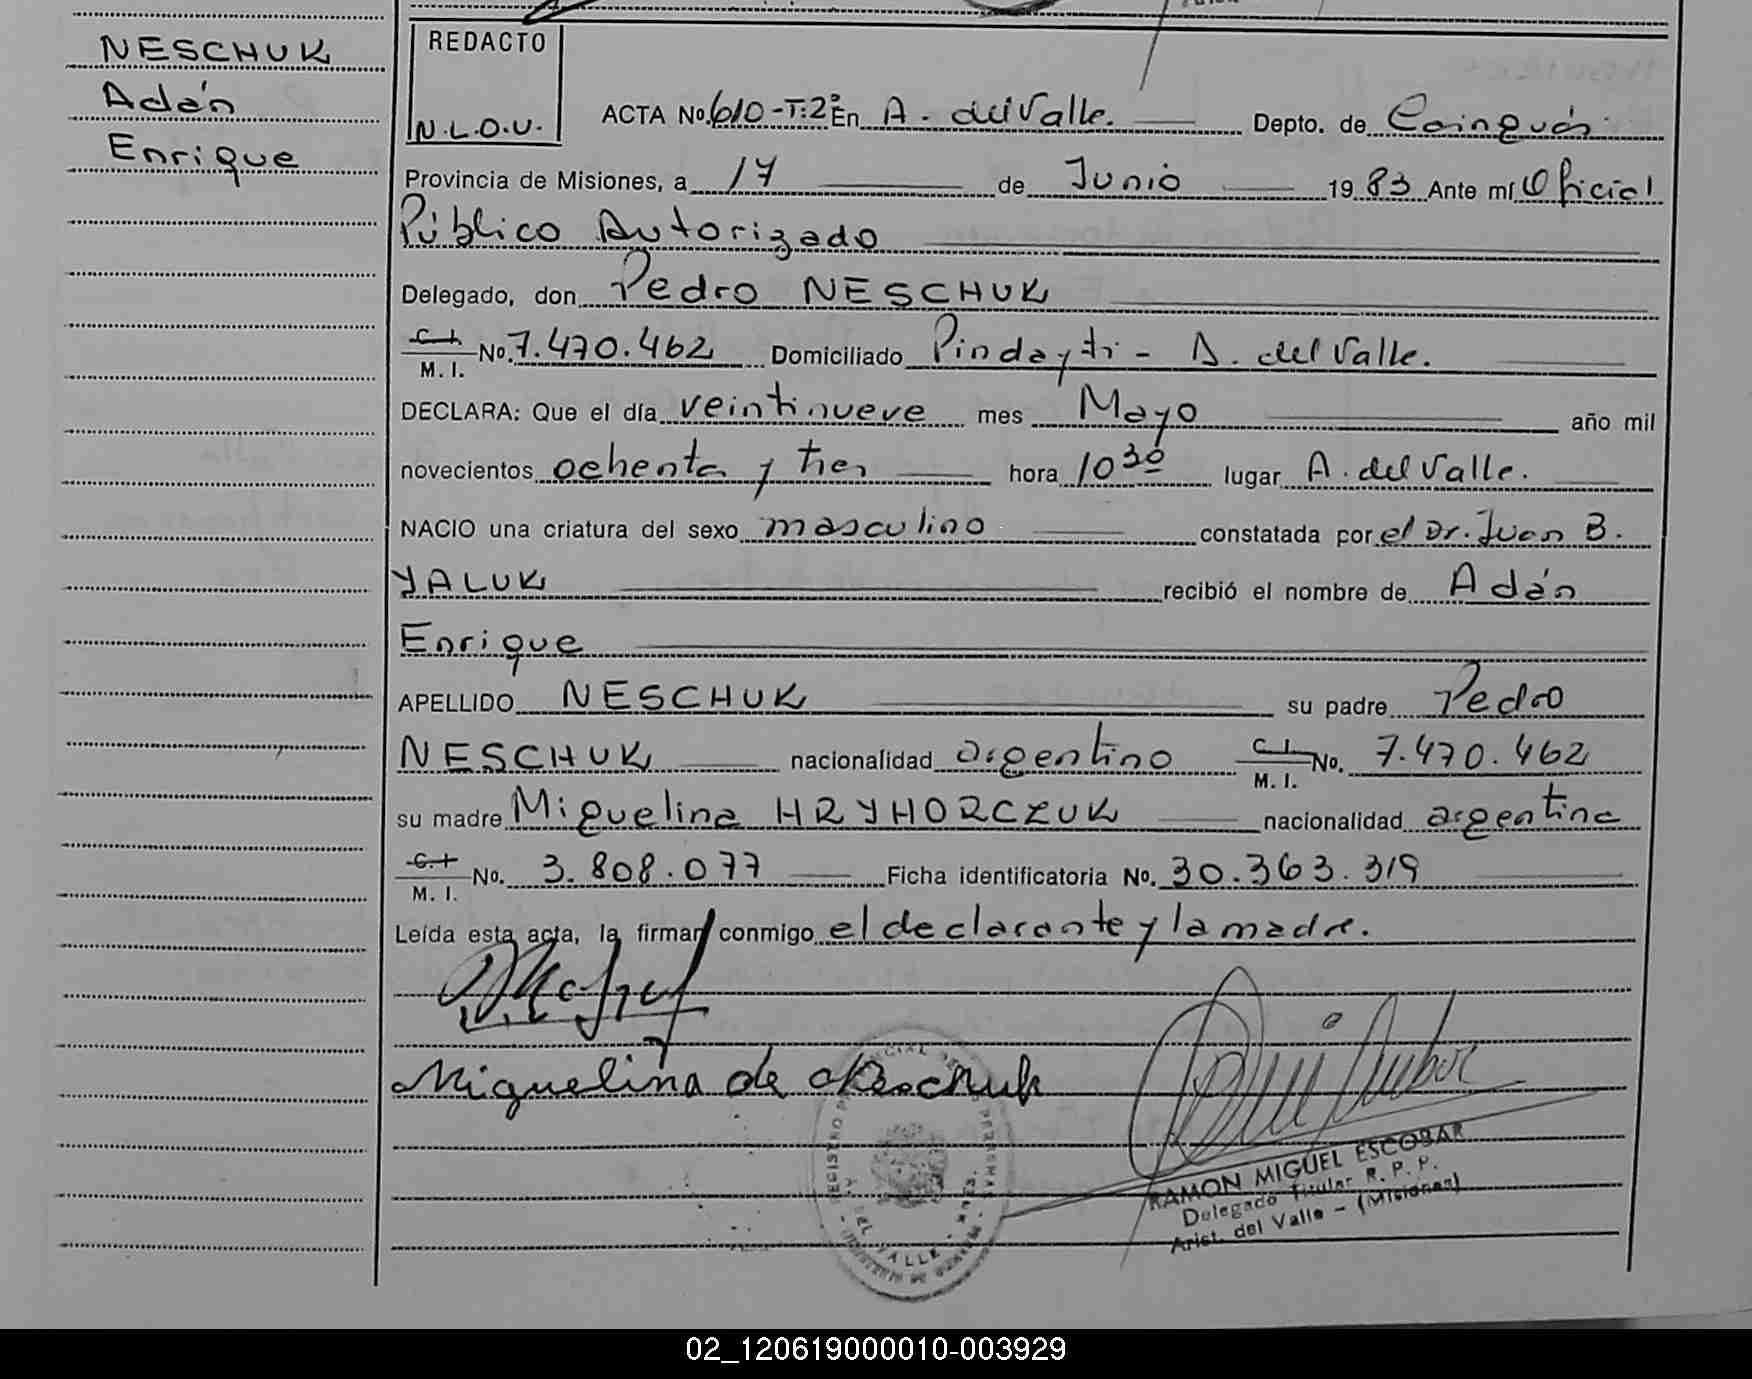 NESCHUK
Adán
Enrique
REDACTO
N.L.O.U.
ACTA No. 610-T:2º En A. del Valle. Depto. de Cainguás
Provincia de Misiones, a 17 de Junio 1983 Ante mí Oficial
Público Autorizado
Delegado, don Pedro NESCHUK
C.I.
M. I. No. 7.470.462 Domiciliado Pindayti - A. del Valle.
DECLARA: Que el día veintinueve mes Mayo año mil
novecientos ochenta y tres hora 10 30 lugar A. del Valle.
NACIO una criatura del sexo masculino constatada por el Dr. Juan B.
YALUK recibió el nombre de Adán
Enrique
APELLIDO NESCHUK su padre Pedro
NESCHUK nacionalidad argentino C.I.
M. I. No. 7.470.462
su madre Miguelina HRYHORCZUK nacionalidad argentina
C.I.
M. I. No. 3.808.077 Ficha identificatoria No. 30.363.319
Leída esta acta, la firman conmigo el declarante y la madre.
Miguelina de Neschuk
RAMON MIGUEL ESCOBAR
Delegado Titular R. P. P.
Arist. del Valle - (Misiones)
02_120619000010-003929